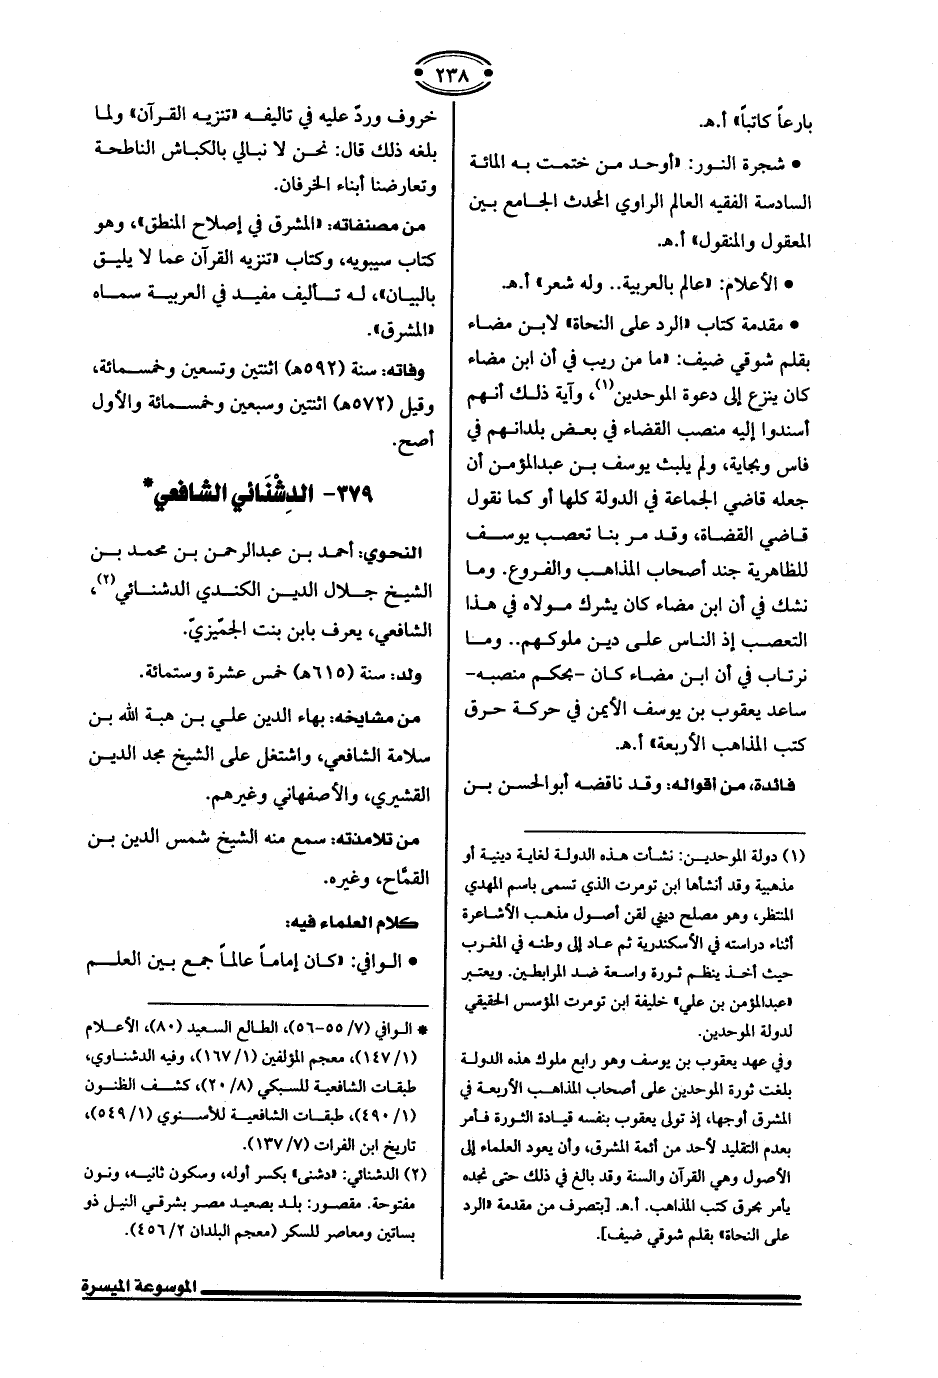 ٢٣٨
بارعاً كاتباً» أ.هـ.
• شجرة النور: «أوحد من ختمت به المائة
السادسة الفقيه العالم الراوي المحدث الجامع بين
المعقول والمنقول» أ.هـ.
• الأعلام: «عالم بالعربية.. وله شعر» أ.هـ.
• مقدمة كتاب «الرد على النحاة» لابن مضاء
بقلم شوقي ضيف: «ما من ريب في أن ابن مضاء
كان ينزع إلى دعوة الموحدين(١)، وآية ذلك أنهم
أسندوا إليه منصب القضاء في بعض بلدانهم في
فاس وبجاية، ولم يلبث يوسف بن عبدالمؤمن أن
جعله قاضي الجماعة في الدولة كلها أو كما نقول
قاضي القضاة، وقد مر بنا تعصب يوسف
للظاهرية جند أصحاب المذاهب والفروع. وما
نشك في أن ابن مضاء كان يشرك مولاه في هذا
التعصب إذ الناس على دين ملوكهم.. وما
نرتاب في أن ابن مضاء كان -بحكم منصبه-
ساعد يعقوب بن يوسف الأيمن في حركة حرق
كتب المذاهب الأربعة» أ.هـ.
فائدة، من أقواله: وقد ناقضه أبوالحسن بن
(١) دولة الموحدين: نشأت هذه الدولة لغاية دينية أو
مذهبية وقد أنشأها ابن تومرت الذي تسمى باسم المهدي
المنتظر، وهو مصلح ديني لقن أصول مذهب الأشاعرة
أثناء دراسته في الأسكندرية ثم عاد إلى وطنه في المغرب
حيث أخذ ينظم ثورة واسعة ضد المرابطين. ويعتبر
«عبدالمؤمن بن علي» خليفة ابن تومرت المؤسس الحقيقي
لدولة الموحدين.
وفي عهد يعقوب بن يوسف وهو رابع ملوك هذه الدولة
بلغت ثورة الموحدين على أصحاب المذاهب الأربعة في
المشرق أوجها، إذ تولى يعقوب بنفسه قيادة الثورة فأمر
بعدم التقليد لأحد من أئمة المشرق، وأن يعود العلماء إلى
الأصول وهي القرآن والسنة وقد بالغ في ذلك حتى نجده
يأمر بحرق كتب المذاهب. أ.هـ. [بتصرف من مقدمة «الرد
على النحاة» بقلم شوقي ضيف].
خروف وردّ عليه في تاليفه «تنزيه القرآن» ولما
بلغه ذلك قال: نحن لا نبالي بالكباش الناطحة
وتعارضنا أبناء الخرفان.
من مصنفاته: «المشرق في إصلاح المنطق»، وهو
كتاب سيبويه، وكتاب «تنزيه القرآن عما لا يليق
بالبيان»، له تأليف مفيد في العربية سماه
«المشرق».
وفاته: سنة (٥٩٢هـ) اثنتين وتسعين وخمسمائة،
وقيل (٥٧٢هـ) اثنتين وسبعين وخمسمائة والأول
أصح.
٣٧٩- الدِشْنَائي الشافعي*
النحوي: أحمد بن عبدالرحمن بن محمد بن
الشيخ جلال الدين الكندي الدشنائي(٢)،
الشافعي، يعرف بابن بنت الجمّيزيّ.
ولد: سنة (٦١٥هـ) خمس عشرة وستمائة.
من مشايخه: بهاء الدين علي بن هبة الله بن
سلامة الشافعي، واشتغل على الشيخ مجد الدين
القشيري، والأصفهاني وغيرهم.
من تلامذته: سمع منه الشيخ شمس الدين بن
القمَّاح، وغيره.
كلام العلماء فيه:
• الوافي: «كان إماماً عالماً جمع بين العلم
* الوافي (٧/ ٥٥-٥٦)، الطالع السعيد (٨٠)، الأعلام
(١/ ١٤٧)، معجم المؤلفين (١/ ١٦٧)، وفيه الدشناوي،
طبقات الشافعية للسبكي (٨/ ٢٠)، كشف الظنون
(١/ ٤٩٠)، طبقات الشافعية للأسنوي (١/ ٥٤٩)،
تاريخ ابن الفرات (٧/ ١٣٧).
(٢) الدشنائي: «دشنى» بكسر أوله، وسكون ثانيه، ونون
مفتوحة. مقصور: بلد بصعيد مصر بشرقي النيل ذو
بساتين ومعاصر للسكر (معجم البلدان ٢/ ٤٥٦).
الموسوعة الميسرة